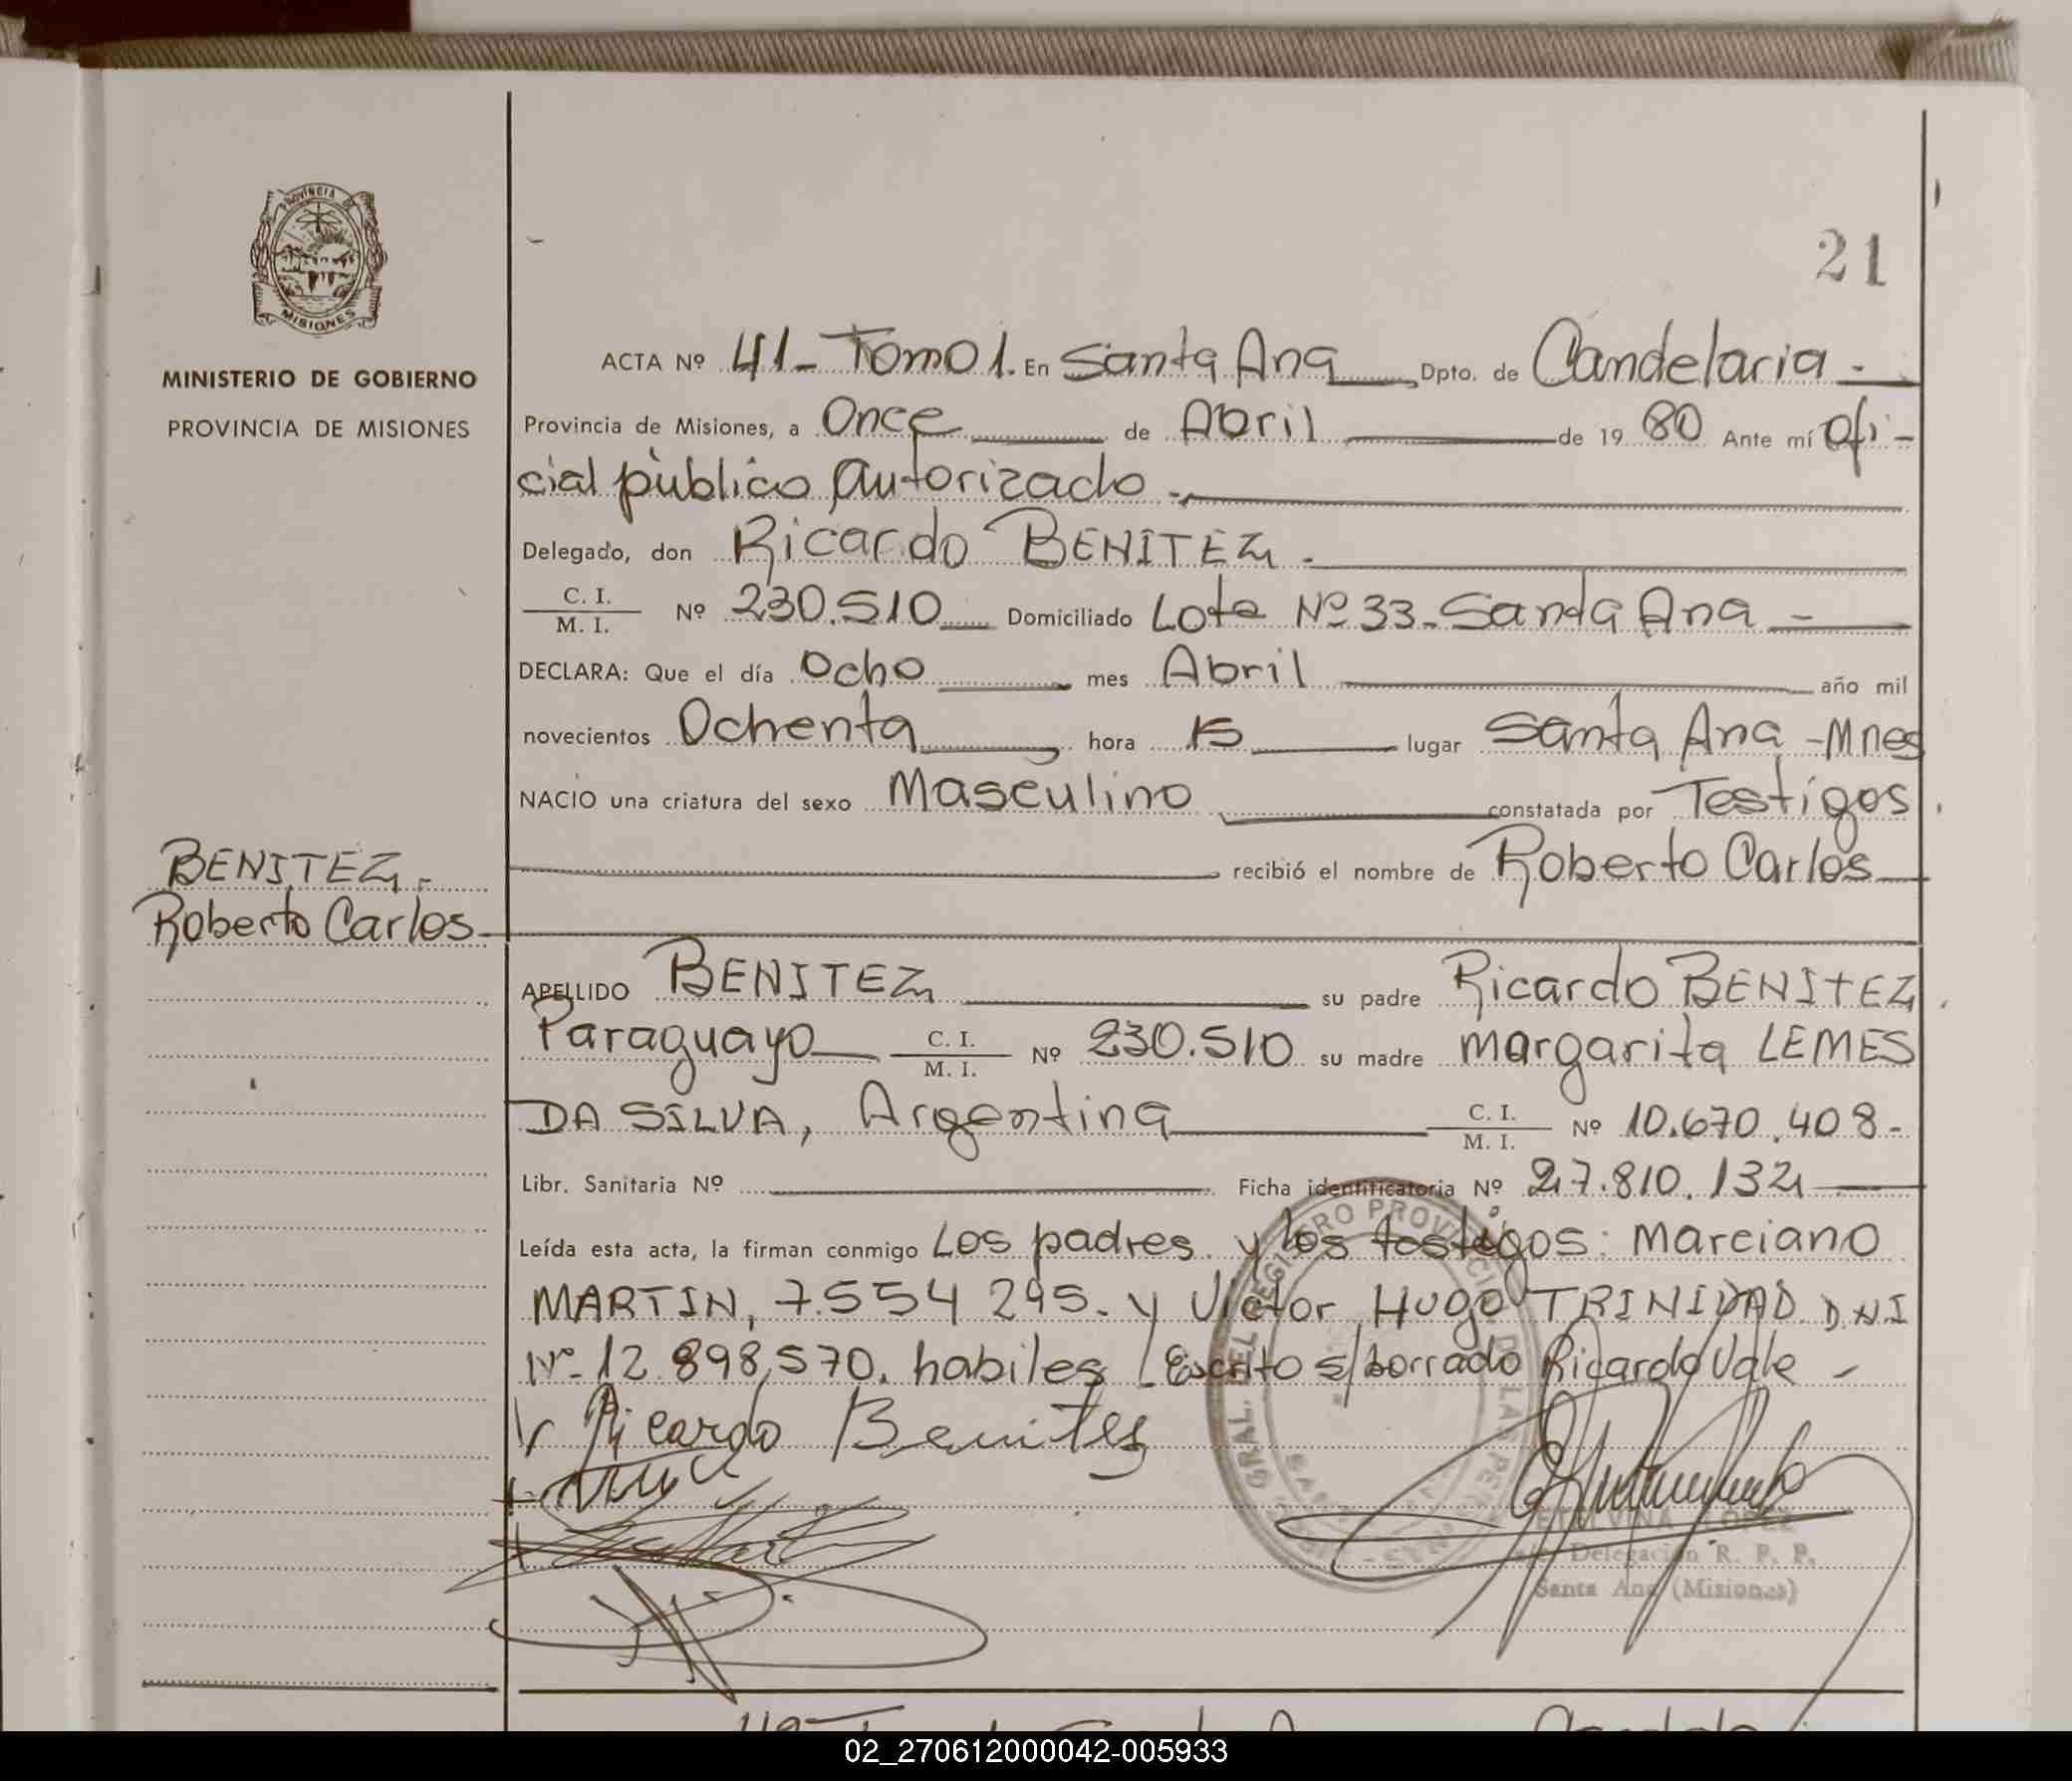 PROVINCIA DE
MISIONES
MINISTERIO DE GOBIERNO
PROVINCIA DE MISIONES
21
ACTA Nº 41- Tomo 1. En Santa Ana Dpto. de Candelaria.-
Provincia de Misiones, a Once de Abril de 19 80 Ante mí Ofi-
cial público Autorizado.-
Delegado, don Ricardo BENITEZ.
C. I. / M. I. Nº 230.510 Domiciliado Lote Nº 33- Santa Ana -
DECLARA: Que el día Ocho mes Abril año mil
novecientos Ochenta hora 15 lugar Santa Ana -Mnes
NACIO una criatura del sexo Masculino constatada por Testigos.
recibió el nombre de Roberto Carlos
BENITEZ.-
Roberto Carlos
APELLIDO BENITEZ su padre Ricardo BENITEZ.
Paraguayo C. I. / M. I. Nº 230.510 su madre Margarita LEMES
DA SILVA, Argentina C. I. / M. I. Nº 10.670.408-
Libr. Sanitaria Nº Ficha identificatoria Nº 27.810.132
Leída esta acta, la firman conmigo Los padres y los testigos: Marciano
MARTIN, 7.554 295. y Victor Hugo TRINIDAD. D.N.I
Nº 12.898,570. habiles - Escrito s/borrado Ricardo Vale -
Ricardo Benites
ETELVINA LOPEZ
Delegación R. P. P.
Santa Ana (Misiones)
02_270612000042-005933